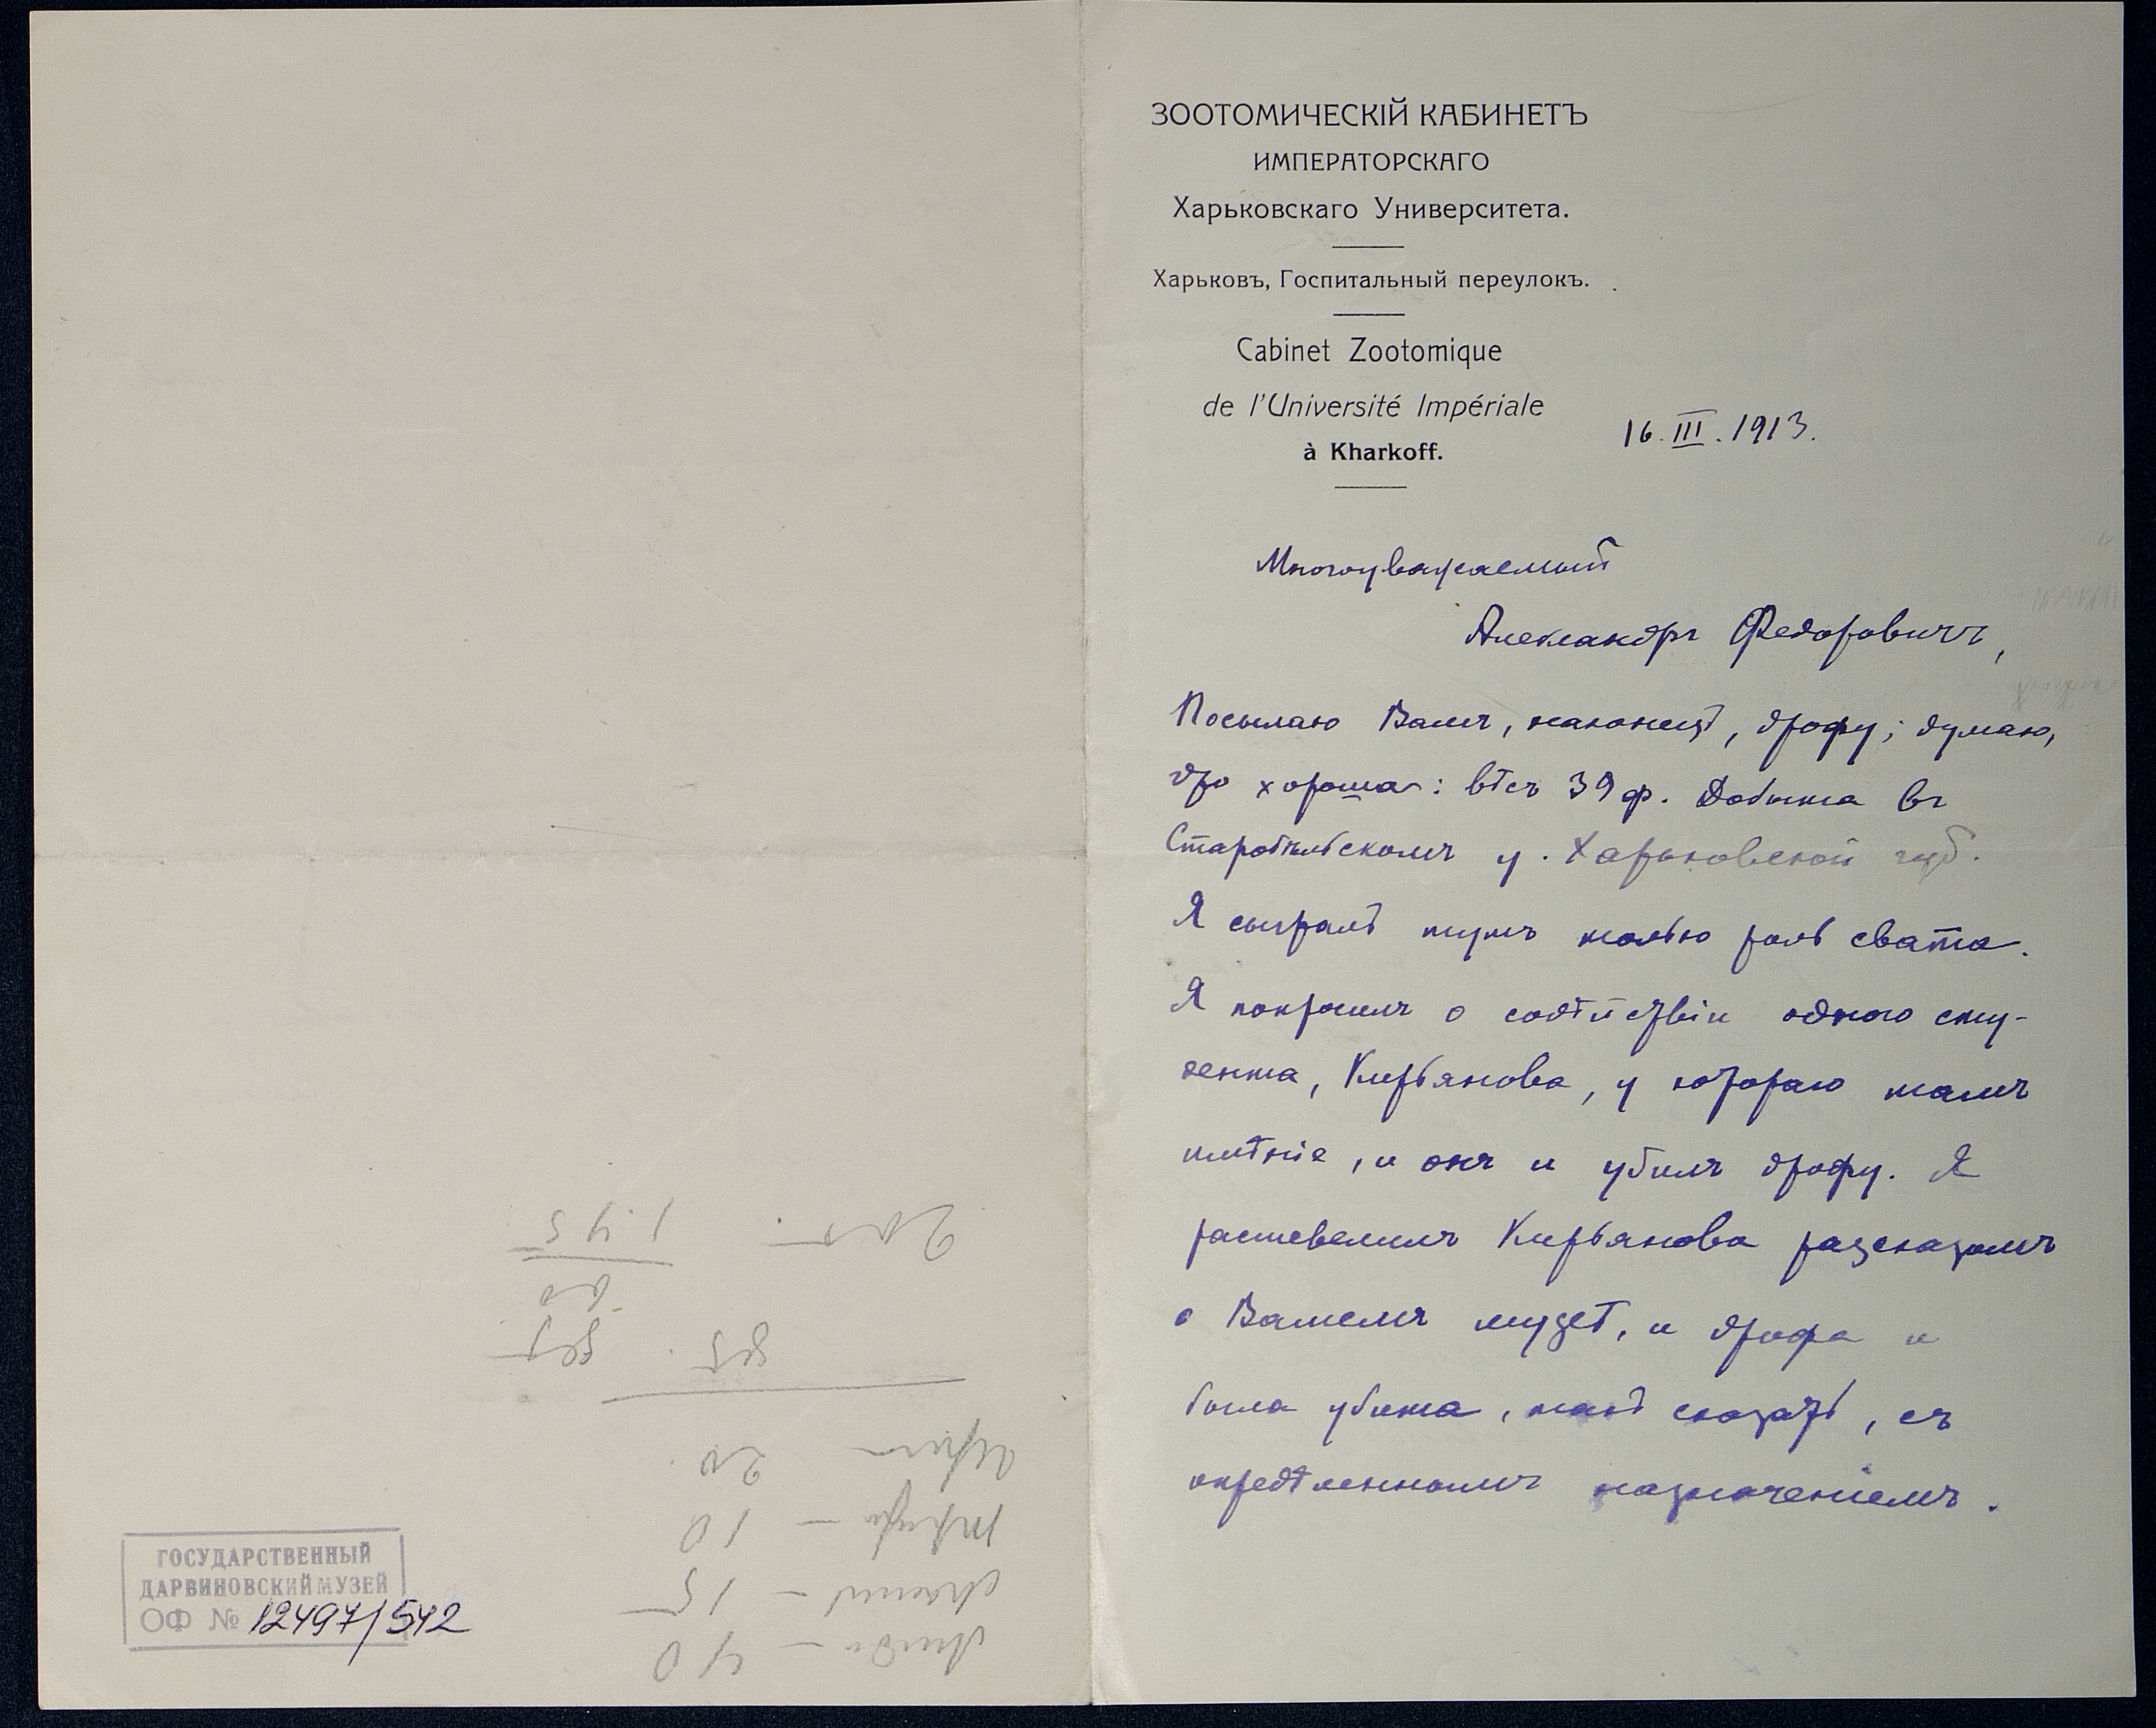 ЗООТОМИЧЕСКІЙ КАБИНЕТЪ
ИМПЕРАТОРСКАГО
Харьковскаго Университета.
Харьковъ, Госпитальный переулокъ.
Cabinet Zootomique
de l'Université Impériale
à Kharkoff.
16.III.1913.
Многоуважаемый
Александръ Федоровичъ,
Посылаю Вамъ, наконецъ, дрофу; думаю,
что хороша: вѣсъ 39 ф. Добыта въ
Старобѣльскомъ у. Харьковской губ.
Я сыгралъ тутъ только роль свата.
Я попросилъ о содѣйствіи одного сту-
дента, Кирьянова, у котораго тамъ
имѣніе, и онъ и убилъ дрофу. Я
расшевелилъ Кирьянова разсказомъ
о Вашемъ музеѣ, и дрофа и
была убита, такъ сказать, съ
опредѣленнымъ назначеніемъ.
1.45
60
85
85
20
10
15
40
ГОСУДАРСТВЕННЫЙ
ДАРВИНОВСКИЙ МУЗЕЙ
ОФ № 12497/542